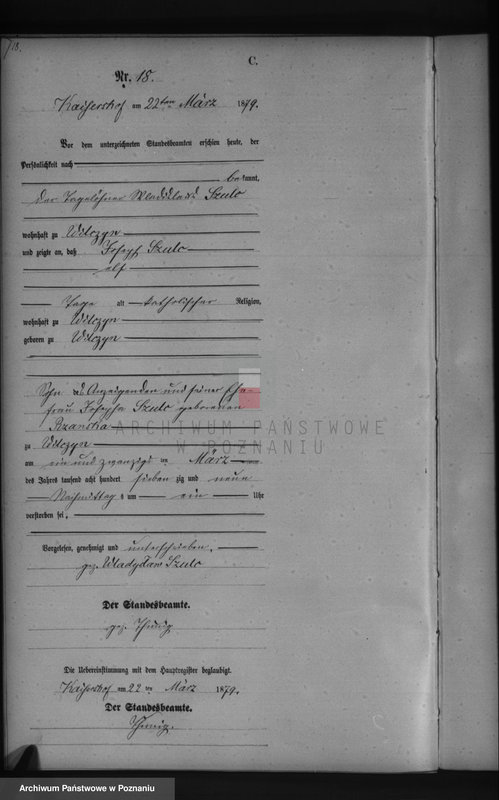 18.
C.
Nr. 18.
Kaisershof am 22ten März 1879.
Vor dem unterzeichneten Standesbeamten erschien heute, der
Persönlichkeit nach
bekannt,
der Tagelöhner Wladislaus Szulc
wohnhaft zu Wilczyn
und zeigte an, daß Joseph Szulc
elf
Tage alt katholischer Religion,
wohnhaft zu Wilczyn
geboren zu Wilczyn
Sohn des Anzeigenden und seiner Ehe-
frau Josepha Szulc geborenen
Rzanska
zu Wilczyn
am ein und zwanzigsten März
des Jahres tausend acht hundert sieben zig und neun
Nachmittags um ein Uhr
verstorben sei.
Vorgelesen, genehmigt und unterschrieben.
gez. Wladysław Szulc
Der Standesbeamte.
gez.
Die Uebereinstimmung mit dem Hauptregister beglaubigt.
Kaisershof am 22ten März 1879.
Der Standesbeamte.
ARCHIWUM PAŃSTWOWE
W POZNANIU
Archiwum Państwowe w Poznaniu